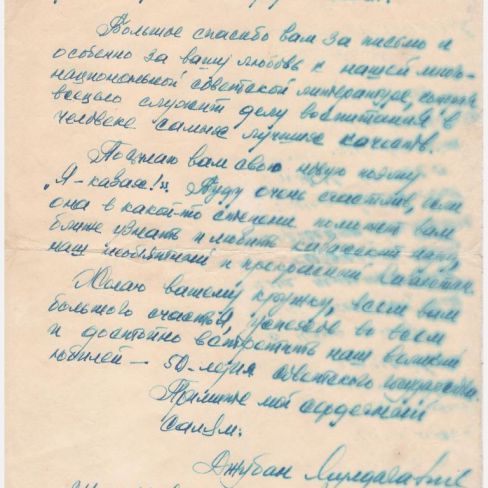 Большое спасибо вам за письмо и
особенно за вашу любовь к нашей много-
национальной советской литературе, которая
всецело служит делу воспитания в
человеке самых лучших качеств.
Посылаю вам свою новую поэму
„Я - казах!". Буду очень счастлив, если
она в какой-то степени поможет вам
ближе узнать и любить казахский народ,
наш необъятный и прекрасный Казахстан.
Желаю вашему кружку, всем вам
большого счастья, успехов во всем
и достойно встретить наш великий
юбилей — 50-летия советского государства.
Примите мой сердечный
салем.
Джубан Мулдагалиев